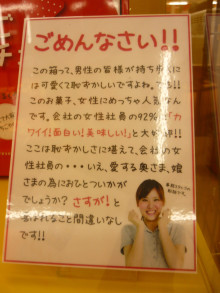 ごめんなさい!!
この箱って、男性の皆様が持ち歩くに
は可愛くて恥ずかしいですよね。
このお菓子、女性にめっちゃ人気なん
です。会社の女性社員の92%が「カ
ワイイ!面白い!美味しい!」と大好評!!
ここは恥ずかしさに堪えて、会社の女
性社員の・・・いえ、愛する奥さま、娘
さまの為におひとついかが
でしょうか?さすが!と
喜ばれること間違いなし
です!!